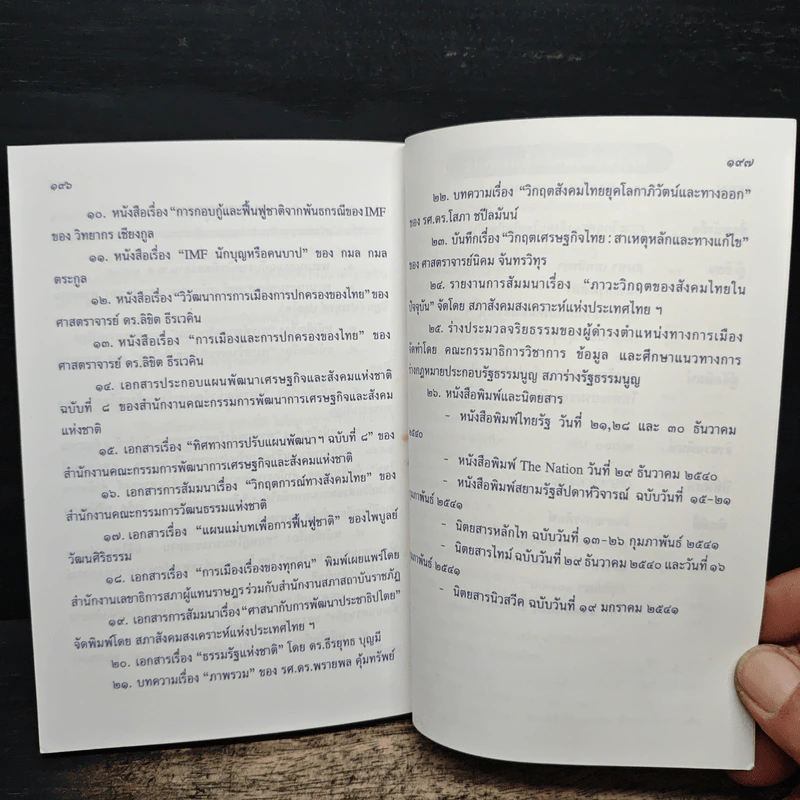 ๑๙๖
๑๐. หนังสือเรื่อง "การกอบกู้และฟื้นฟูชาติจากพันธกรณีของ IMF
ของ วิทยากร เชียงกูล
๑๑. หนังสือเรื่อง "IMF นักบุญหรือคนบาป" ของ กมล กมล
ตระกูล
๑๒. หนังสือเรื่อง "วิวัฒนาการการเมืองการปกครองของไทย" ของ
ศาสตราจารย์ ดร.ลิขิต ธีรเวคิน
๑๓. หนังสือเรื่อง "การเมืองและการปกครองของไทย" ของ
ศาสตราจารย์ ดร.ลิขิต ธีรเวคิน
๑๔. เอกสารประกอบแผนพัฒนาเศรษฐกิจและสังคมแห่งชาติ
ฉบับที่ ๘ ของสำนักงานคณะกรรมการพัฒนาการเศรษฐกิจและสังคม
แห่งชาติ
๑๕. เอกสารเรื่อง "ทิศทางการปรับแผนพัฒนาฯ ฉบับที่ ๘" ของ
สำนักงานคณะกรรมการพัฒนาการเศรษฐกิจและสังคมแห่งชาติ
๑๖. เอกสารการสัมมนาเรื่อง "วิกฤตการณ์ทางสังคมไทย" ของ
สำนักงานคณะกรรมการวัฒนธรรมแห่งชาติ
๑๗. เอกสารเรื่อง "แผนแม่บทเพื่อการฟื้นฟูชาติ" ของไพบูลย์
วัฒนศิริธรรม
๑๘. เอกสารเรื่อง "การเมืองเรื่องของทุกคน" พิมพ์เผยแพร่โดย
สำนักงานเลขาธิการสภาผู้แทนราษฎร ร่วมกับสำนักงานสภาสถาบันราชภัฏ
๑๙. เอกสารการสัมมนาเรื่อง "ศาสนากับการพัฒนาประชาธิปไตย"
จัดพิมพ์โดย สภาสังคมสงเคราะห์แห่งประเทศไทย ฯ
๒๐. เอกสารเรื่อง "ธรรมรัฐแห่งชาติ" โดย ดร.ธีรยุทธ บุญมี
๒๑. บทความเรื่อง "ภาพรวม" ของ รศ.ดร.พรายพล คุ้มทรัพย์
๑๙๗
๒๒. บทความเรื่อง "วิกฤตสังคมไทยยุคโลกาภิวัตน์และทางออก"
ของ รศ.ดร.โสภา ชปีลมันน์
๒๓. บันทึกเรื่อง "วิกฤตเศรษฐกิจไทย : สาเหตุหลักและทางแก้ไข"
ของ ศาสตราจารย์นิคม จันทรวิทุร
๒๔. รายงานการสัมมนาเรื่อง "ภาวะวิกฤตของสังคมไทยใน
ปัจจุบัน" จัดโดย สภาสังคมสงเคราะห์แห่งประเทศไทย ฯ
๒๕. ร่างประมวลจริยธรรมของผู้ดำรงตำแหน่งทางการเมือง
จัดทำโดย คณะกรรมาธิการวิชาการ ข้อมูล และศึกษาแนวทางการ
ร่างกฎหมายประกอบรัฐธรรมนูญ สภาร่างรัฐธรรมนูญ
๒๖. หนังสือพิมพ์และนิตยสาร
- หนังสือพิมพ์ไทยรัฐ วันที่ ๒๑,๒๘ และ ๓๐ ธันวาคม
๒๕๔๐
- หนังสือพิมพ์ The Nation วันที่ ๒๙ ธันวาคม ๒๕๔๐
- หนังสือพิมพ์สยามรัฐสัปดาห์วิจารณ์ ฉบับวันที่ ๑๕-๒๑
กุมภาพันธ์ ๒๕๔๑
- นิตยสารหลักไท ฉบับวันที่ ๑๓-๒๖ กุมภาพันธ์ ๒๕๔๑
- นิตยสารไทม์ ฉบับวันที่ ๒๙ ธันวาคม ๒๕๔๐ และวันที่ ๑๖
กุมภาพันธ์ ๒๕๔๑
- นิตยสารนิวสวีค ฉบับวันที่ ๑๙ มกราคม ๒๕๔๑